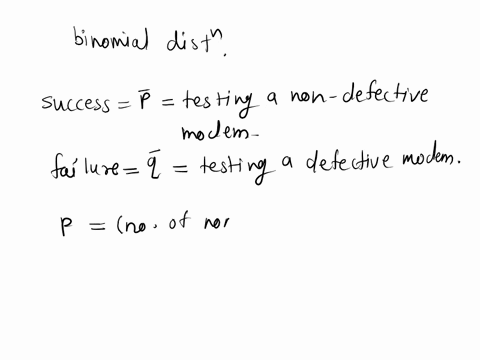 binomial distⁿ.
success = p̄ = testing a non-defective
modem-
failure = q̄ = testing a defective modem.
p = (no. of nor